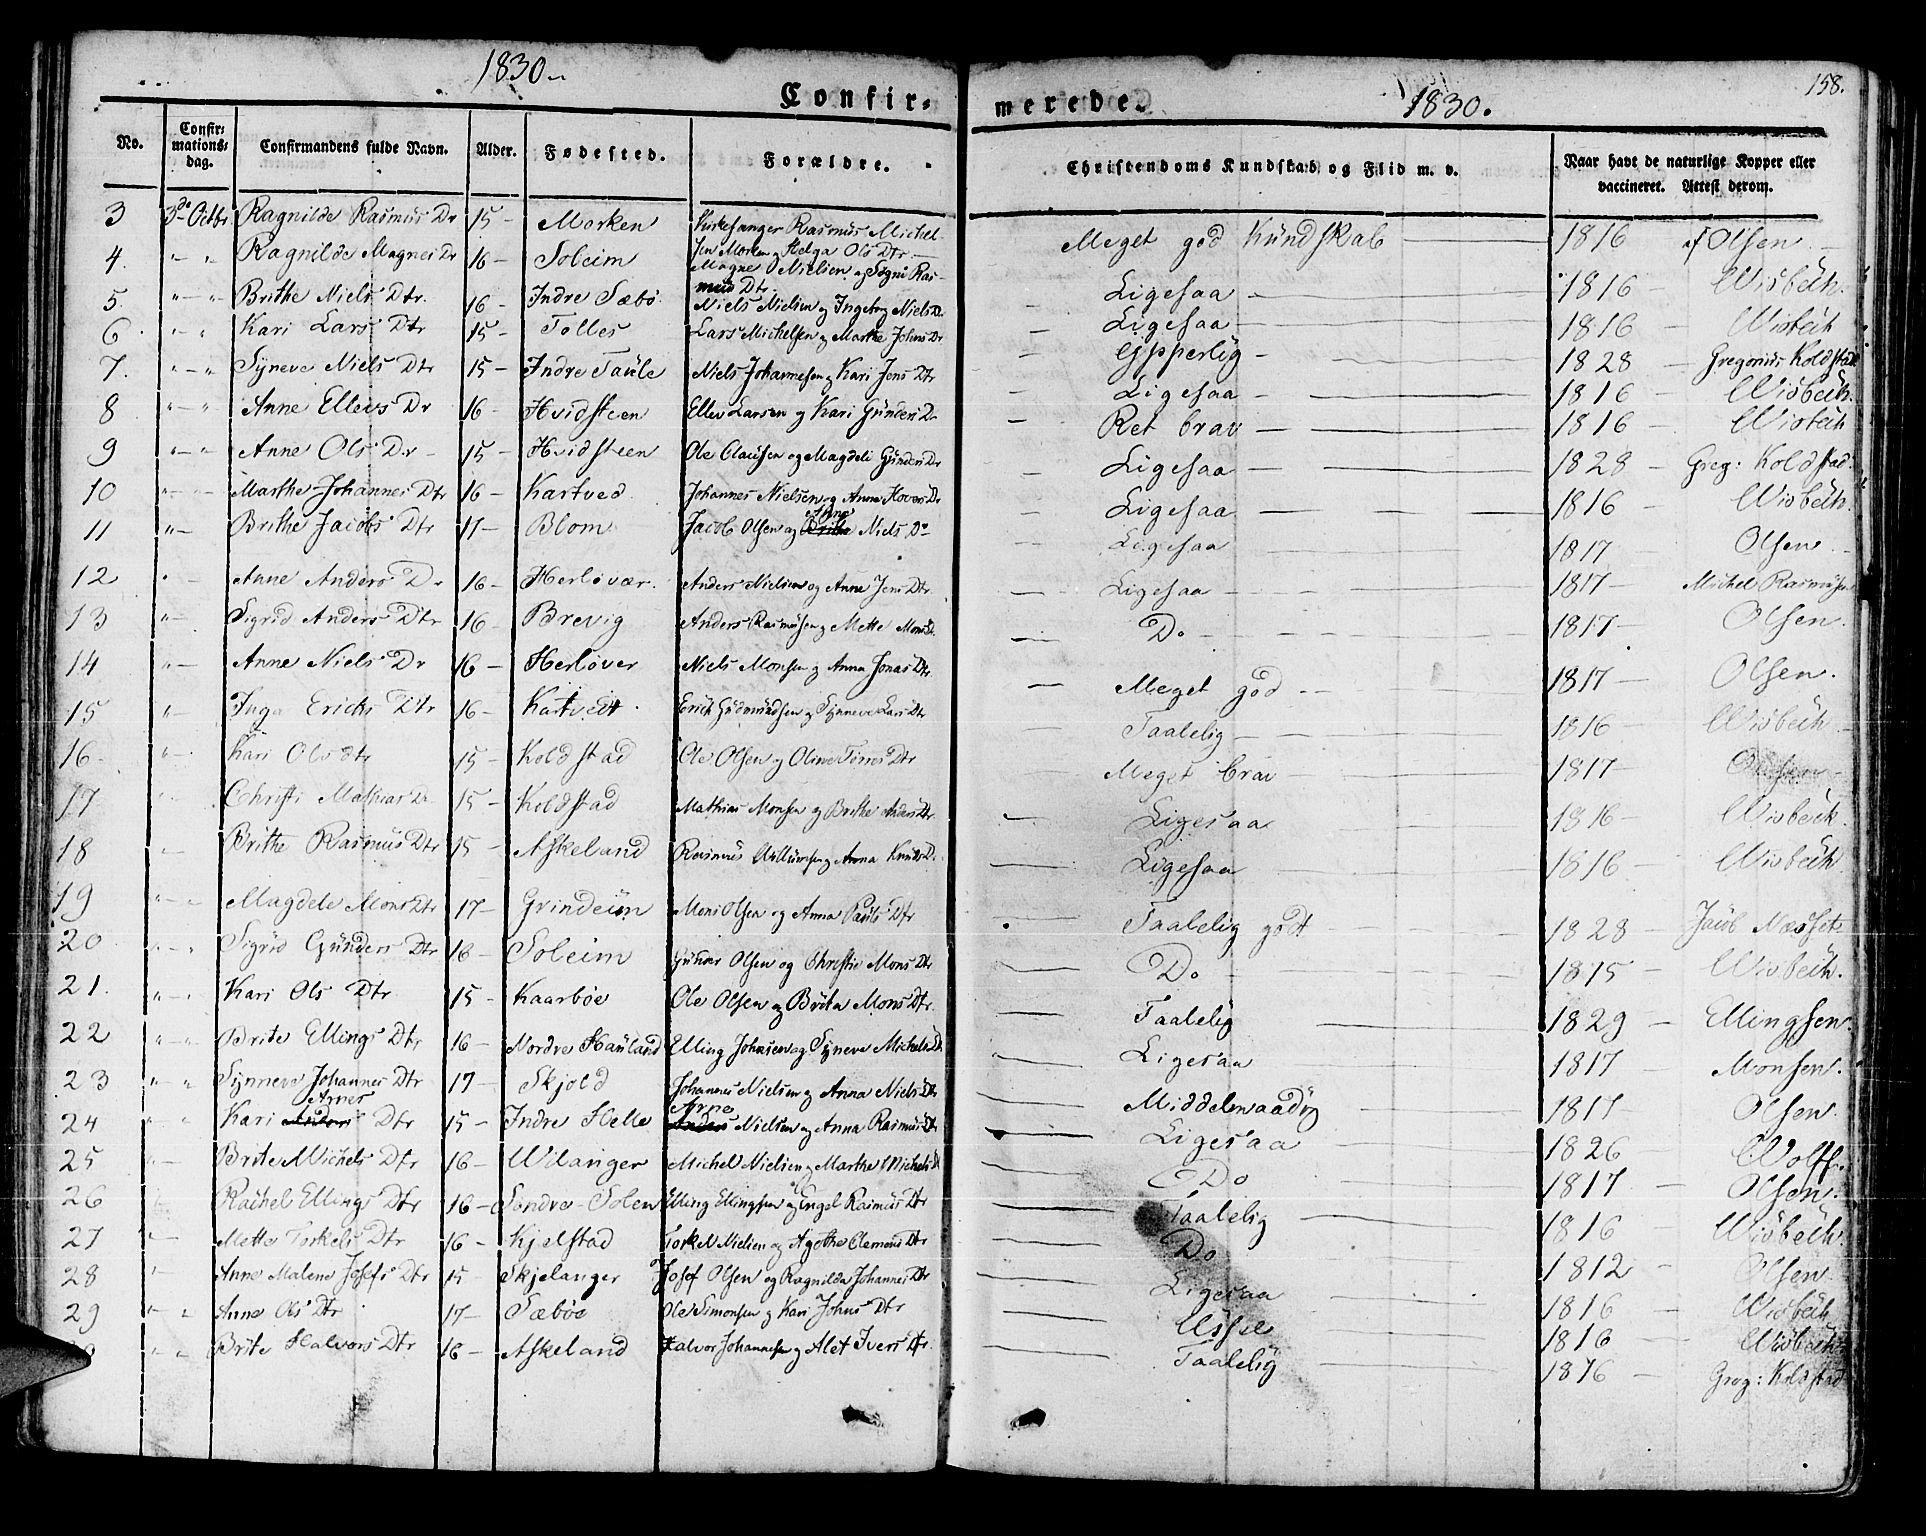 1830
Confir-
No. Confir-mations-dag. Confirmandens fulde Navn. Alder. Fødested. Forældre.
3 3de Octbr Ragnilde Rasmus Dr 15 - Morken Kirkesanger Rasmus Michel-
sen Morken og Helga Ols Dtr
4. " " Ragnilde Magnes Dr 16 - Soleim Magne Nielsen og Sogni Ras-
mus Dtr.
5. " " Brithe Niels Dtr. 16 - Indre Sæbø Niels Nielsen og Ingeborg Niels D.
6. " " Kari Lars Dtr 15 - Tolles Lars Michelsen og Marthe Johns Dr
7. " " Synneve Niels Dtr 15 - Indre Taule Niels Johannesen og Kari Jens Dtr
8 " " Anne Ellevs Dr 16 - Hvidsteen Ellev Larsen og Kari Gunders D.
9 " " Anne Ols Dr 15 - Hvidsteen Ole Clausen og Magdeli Gunders Dr
10 " " Marthe Johannes Dtr 16 - Kartved Johannes Nielsen og Anne Dr
11 " " Brithe Jacobs Dtr 17 - Blom Jacob Olsen og Brithe Niels D.
12 " Anne Anders D. 16 - Herløvær. Anders Nielsen og Anne Jens Dtr
13 " Sigrid Anders Dtr 16 - Brevig Anders Rasmusen og Mette Mons D.
14 " Anne Niels Dr 16 - Herløver Niels Monsen og Anna Jonas Dtr
15 " Inga Erichs Dtr 16 - Kartvedt Erich Gudmundsen og Synneve Lars Dtr
16 " Kari Ols dtr 15 - Koldstad Ole Olsen og Oline Dtr
17 Christi Mathias D. 15 - Koldstad Mathias Monsen og Brithe Anders Dtr
18 Brithe Rasmus Dtr 15 - Askeland Rasmus Willumsen og Anna Knuds D.
19 " " Magdele Mons Dtr 17 - Grindeim Mons Olsen og Anna Pauls Dtr
20 " " Sigrid Gunders Dtr 16 - Soleim Gunder Olsen og Christie Mons Dtr
21. " " Kari Ols Dtr 15 - Kaarbøe Ole Olsen og Brita Mons Dtr
22 " " Brite Ellings Dtr 16 - Nordre Hauland Elling Johnsen og Synneve Michels Dt
23 " " Synneve Johannes Dtr 17 - Skjold Johannes Nielsen og Anna Niels Dt
Arnes Arne
24 " " Kari Anders Dtr 15 - Indre Helle Anders Nielsen og Anna Rasmus Dtr
25 " Brite Michels Dtr 16 - Wilanger Michel Nielsen og Marthe Michels Dt
26 " Rachel Ellings Dtr 16 - Søndre - Solem Elling Ellingsen og Engel Rasmus Dtr
27 " Mette Torkels Dtr 16 - Kjelstad Torkel Nielsen og Agothe Clemens Dtr
28 " Anne Malene Josefs Dtr 15 - Skjelanger Josef Olsen og Ragnilda Johannes Dtr
29 " " Anne Ols Dtr 17 - Sæbøe Ole Simonsen og Kari Johns Dtr
" " Brite Halvors Dtr 16 - Askeland Halvor Johannesen og Alet Ivers Dtr.
158.
merede. 1830.
Christendoms Kundskab og Flid m. v. Naar havt de naturlige Kopper eller
vaccineret. Attest derom.
Meget god Kundskab 1816 af Olsen
Ligesaa 1816 Wisbech.
Ligesaa 1816 Wisbech
Ypperlig 1828 Gregorius Koldstad
Ligesaa 1816 Wisbech.
Ret brav 1816 Wisbech
Ligesaa 1828 Greg: Koldstad.
Ligesaa 1816 Wisbech.
Ligesaa 1817 Olsen
Ligesaa 1817 Michel Rasmusen
Do 1817 Olsen.
Meget god 1817 Olsen.
Taalelig 1816 Wisbech
Meget brav 1817 Olsen
Ligesaa 1816 Wisbech.
Ligesaa 1816 Wisbech
Taalelig godt 1828 Jacob Næsset
Do 1815 Wisbech.
Taalelig 1829 Ellingsen.
Ligesaa 1817 Monsen.
Middelmaadig 1817 Olsen.
Ligesaa 1826 Wolff.
Do 1817 Olsen.
Taalelig 1816 Wisbech.
Do 1812 Olsen.
Ligesaa 1816 Wisbech
Ussel 1816 Wisbech
Taalelig 1816 Greg: Koldstad